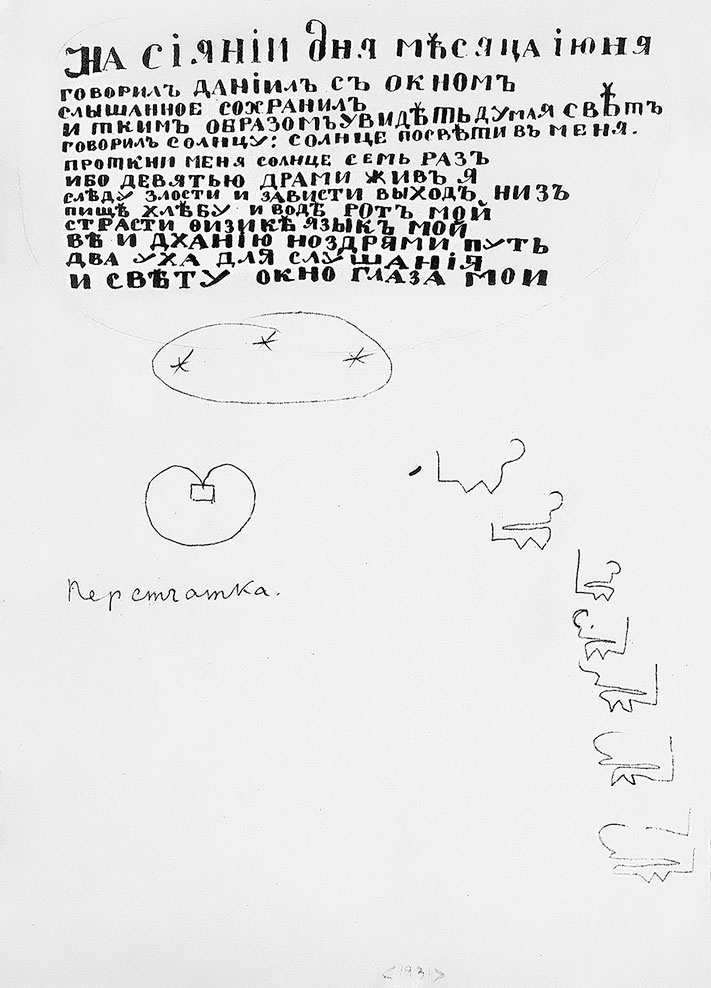 НА СІЯНІИ ДНЯ МѢСЯЦА ІЮНЯ
ГОВОРИЛЪ ДАНІИЛЪ СЪ ОКНОМЪ
СЛЫШАННОЕ СОХРАНИЛЪ
И ТКИМЪ ОБРАЗОМЪ УВИДѢТЬ ДУМАЯ СВѢТЪ
ГОВОРИЛЪ СОЛНЦУ: СОЛНЦЕ ПОСВѢТИ ВЪ МЕНЯ.
ПРОТКНИ МЕНЯ СОЛНЦЕ СЕМЬ РАЗЪ
ИБО ДЕВЯТЬЮ ДРАМИ ЖИВЪ Я
СЛѢДУ ЗЛОСТИ И ЗАВИСТИ ВЫХОДЪ НИЗЪ
ПИЩѢ ХЛѢБУ И ВОДѢ РОТЪ МОЙ
СТРАСТИ ѲИЗИКѢ ЯЗЫКЪ МОЙ
ВѢ И ДХАНІЮ НОЗДРЯМИ ПУТЬ
ДВА УХА ДЛЯ СЛУШАНІЯ
И СВѢТУ ОКНО ГЛАЗА МОИ
Перстчатка.
<1931>